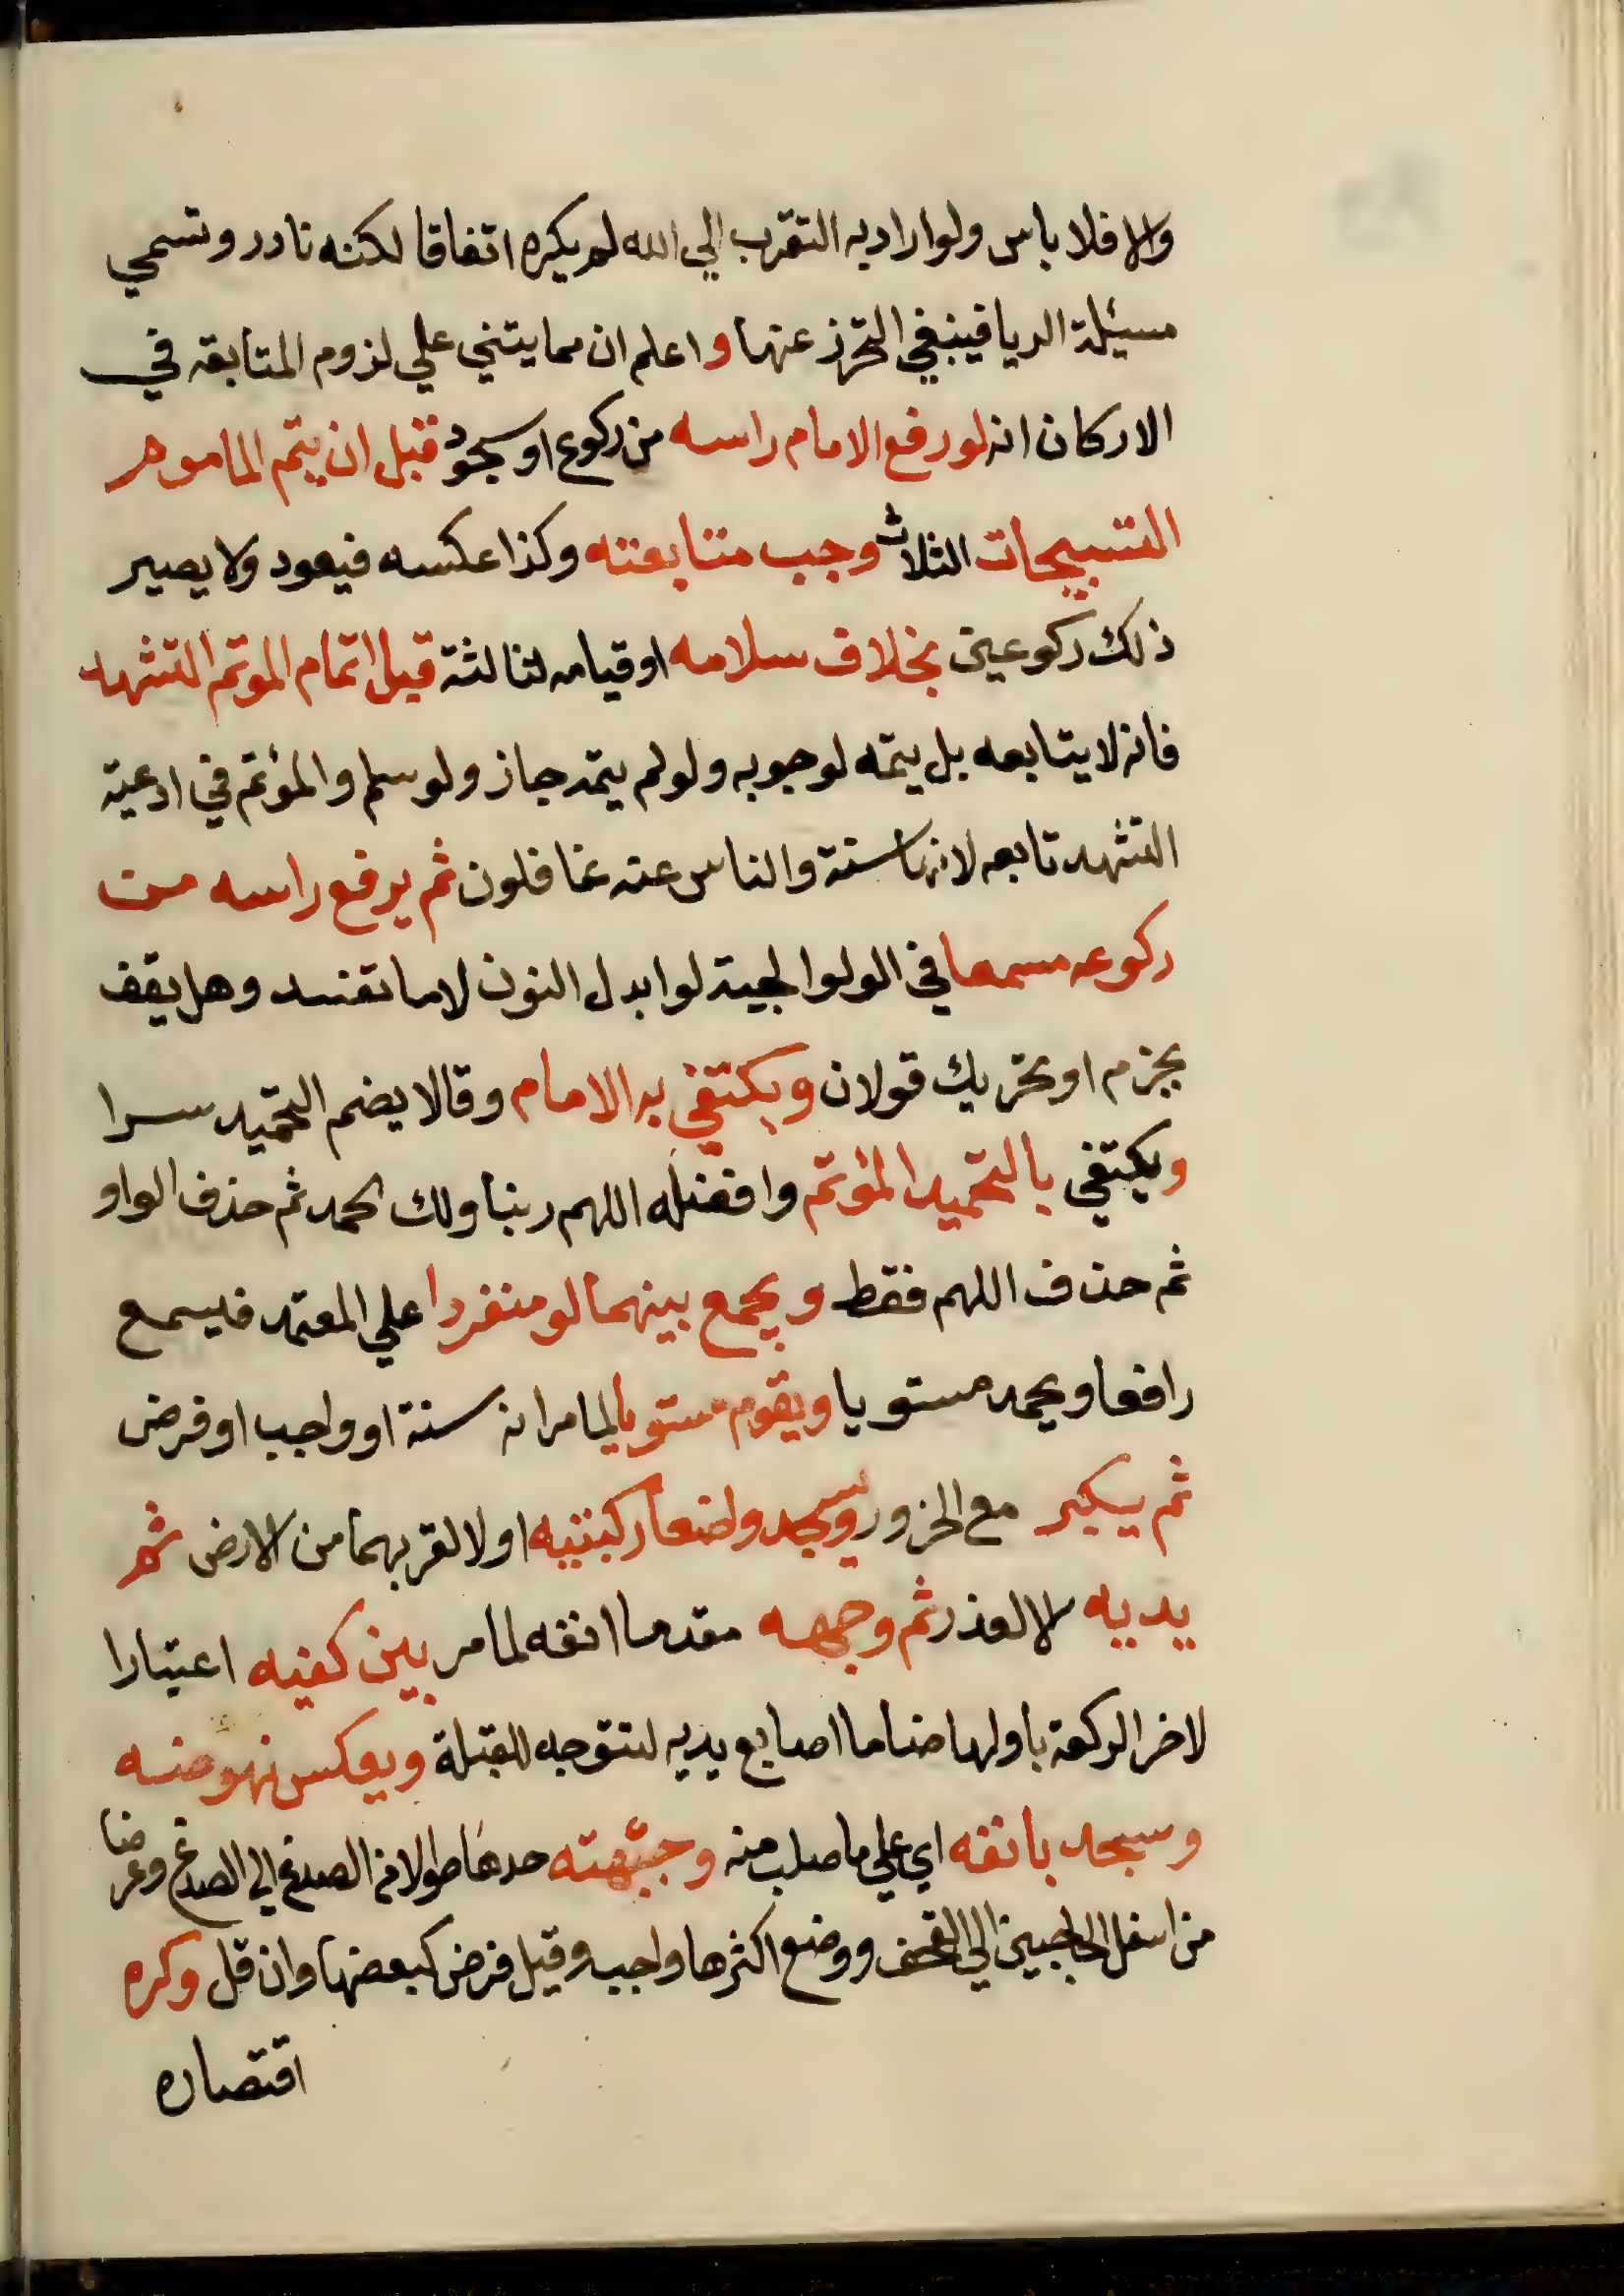 والا فلا باس ولو اراد به التقرب الي الله لم يكره اتفاقا لكنه نادر وتسمي
مسيئلة الريا فينبغي التحرز عنها واعلم ان مما يتني علي لزوم المتابعة في
الاركان انه لو رفع الامام راسه من ركوع او سجود قبل ان يتم الماموم
التسبيحات الثلاث وجب متابعته وكذا عكسه فيعود ولا يصير
ذلك ركوعين بخلاف سلامه او قيامه لثالثة قبل اتمام الموتم التشهد
فانه لا يتابعه بل يتمه لوجوبه ولو لم يتمه جاز ولو سلم والمؤتم في ادعية
التشهد تابعه لانها سنة والناس عنه غافلون ثم يرفع راسه من
ركوعه مسمعا في الولوالجية لو ابدل النون لاما تفسد وهل يقف
بجزم او بتحريك قولان ويكتفي به الامام وقالا يضم التحميد سرا
ويكتفي بالتحميد المؤتم وافضله اللهم ربنا ولك الحمد ثم حذف الواو
ثم حذف اللهم فقط ويجمع بينهما لو منفردا علي المعتمد فيسمع
رافعا ويحمد مستويا ويقوم مستويا لما مر انه سنة او واجب او فرض
ثم يكبر مع الخرور ويسجد واضعا ركبتيه اولا لقربهما من الارض ثم
يديه لا لعذر ثم وجهه مقدما انفه لما مر بين كفيه اعتبارا
لاخر الركعة باولها ضاما اصابع يديه لتتوجه للقبلة ويعكس نهوضه
وسجد بانفه اي علي ما صلب منه وجبهته حدها طولا من الصدغ الي الصدغ وعرضا
من اسفل الحاجبين الي القحف ووضع اكثرها واجب وقيل فرض كبعضها وان قل وكره
اقتصاره